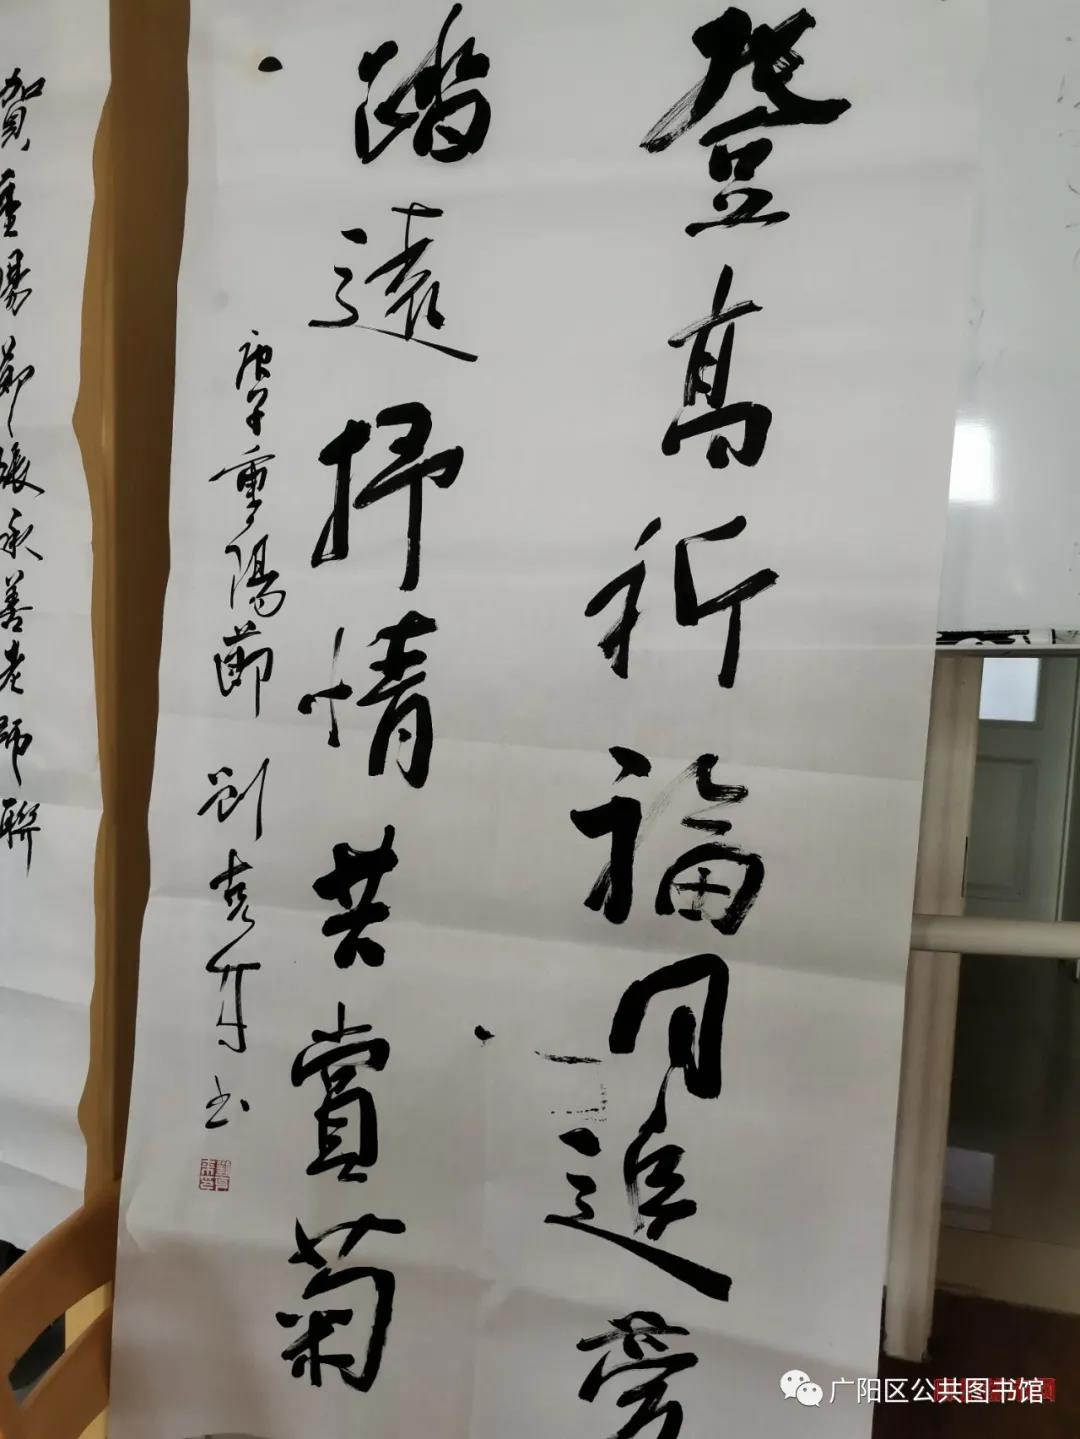 登高祈福同追夢
踏遠抒情共賞菊
庚子重陽節 劉克 书
賀重陽節張承善老師聯
广阳区公共图书馆